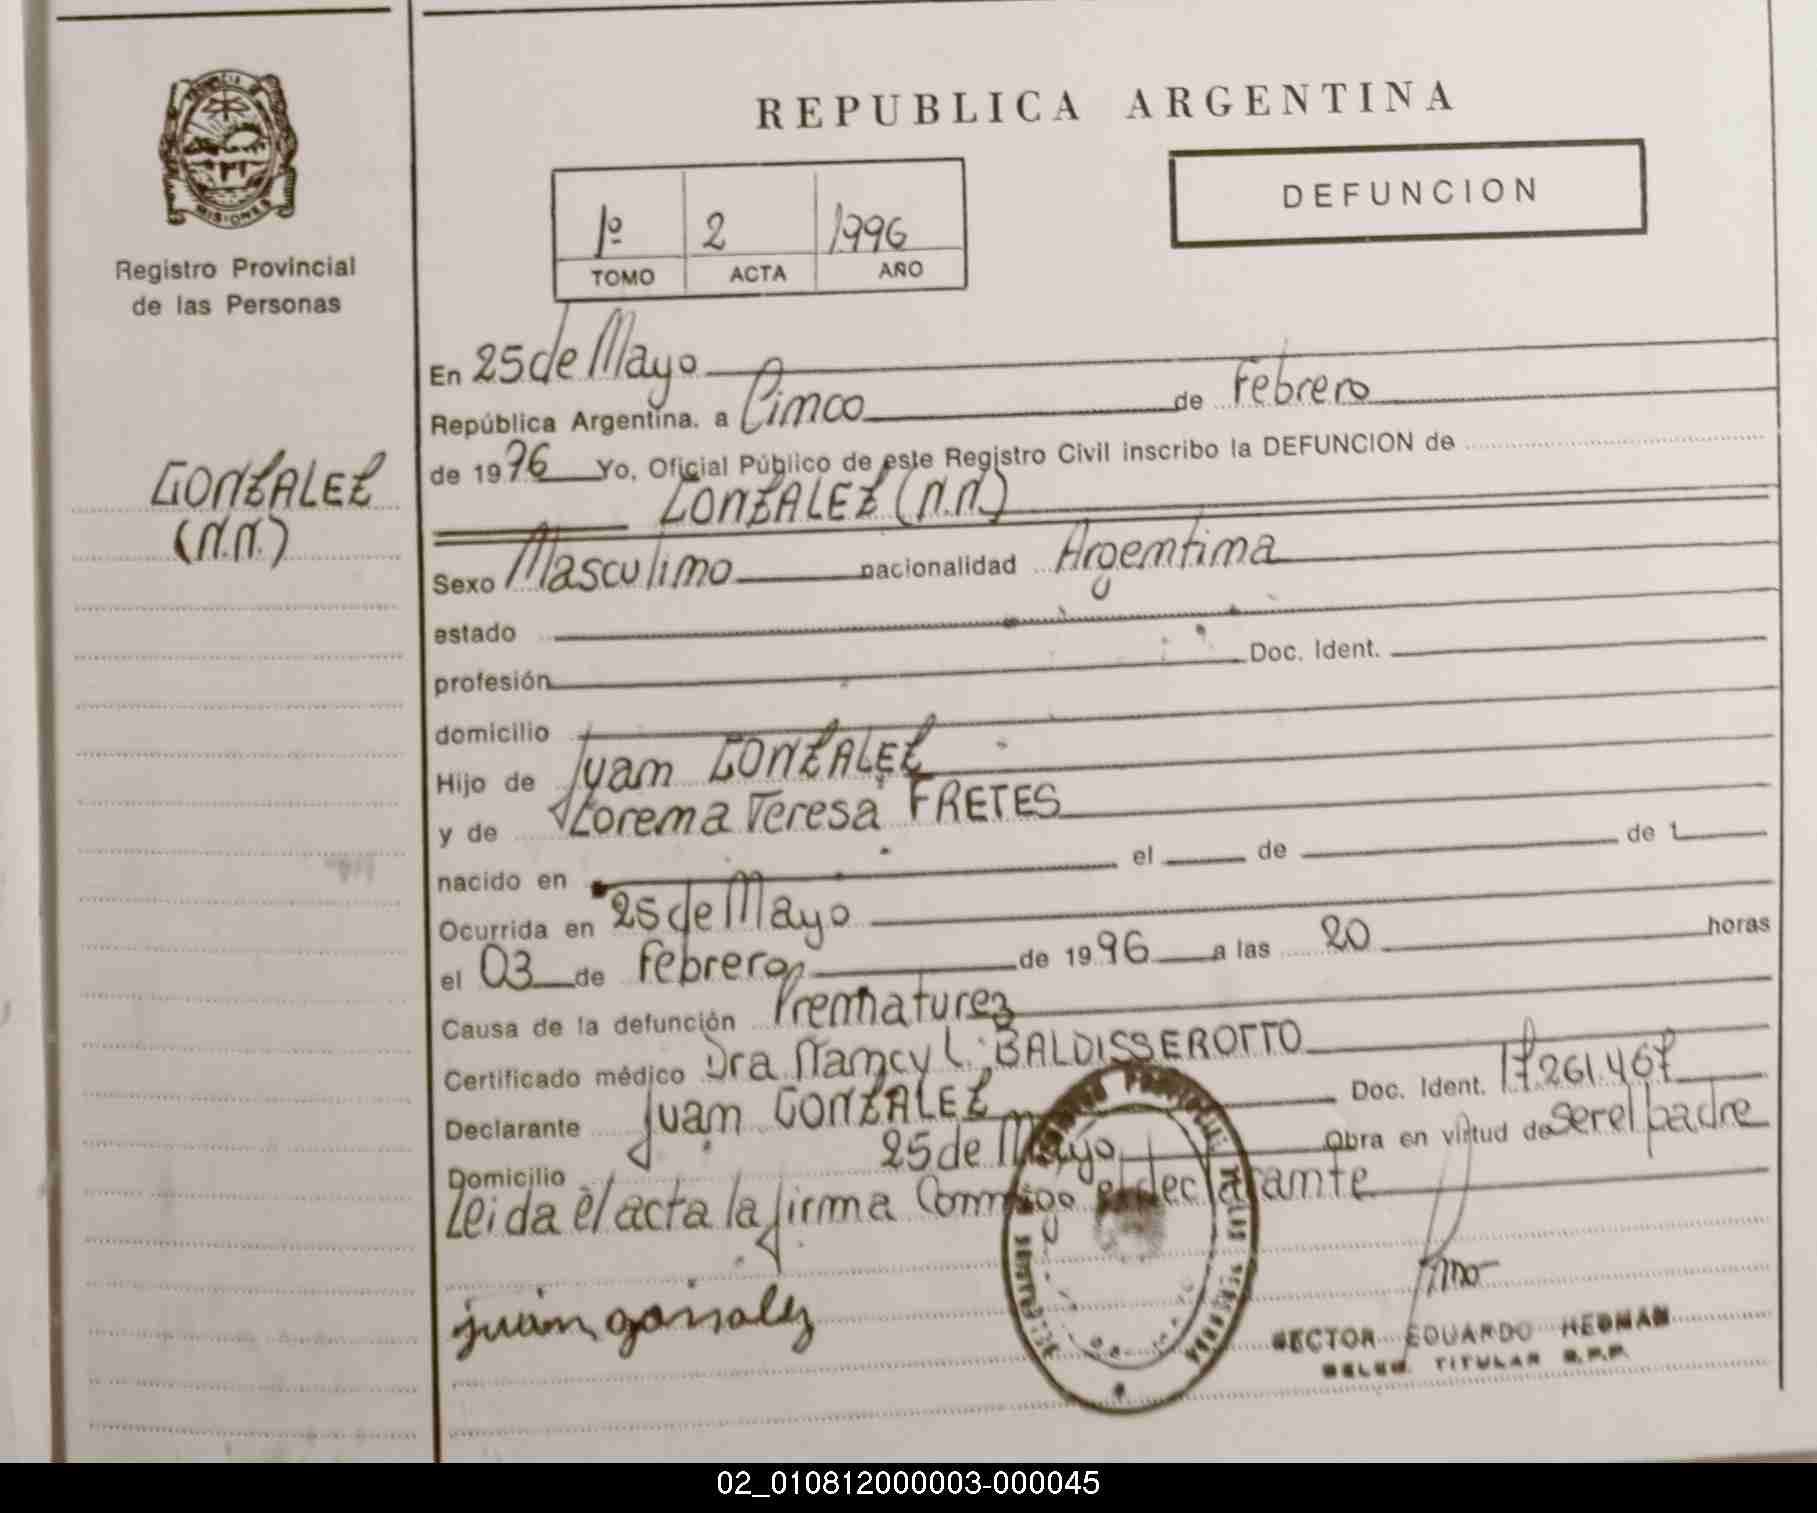 MISIONES
Registro Provincial
de las Personas
GONZALEZ
(N.N.)
REPUBLICA ARGENTINA
DEFUNCION
1º 2 1996
TOMO ACTA AÑO
En 25 de Mayo
República Argentina, a Cinco de Febrero
de 1996 Yo, Oficial Público de este Registro Civil inscribo la DEFUNCION de
GONZALEZ (N.N.)
Sexo Masculino nacionalidad Argentina
estado
profesión Doc. Ident.
domicilio
Hijo de Juan GONZALEZ
y de Lorena Teresa FRETES
nacido en el de de 1
Ocurrida en 25 de Mayo
el 03 de Febrero de 1996 a las 20 horas
Causa de la defunción Prematurez
Certificado médico Dra Nancy L. BALDISSEROTTO
Declarante Juan GONZALEZ Doc. Ident. 17.261.467
Domicilio 25 de Mayo Obra en virtud de ser el padre
Leida el acta la firma Conmigo el declarante
juan gonsalez
HECTOR EDUARDO HEDMAN
DELEG. TITULAR R.P.P.
02_010812000003-000045